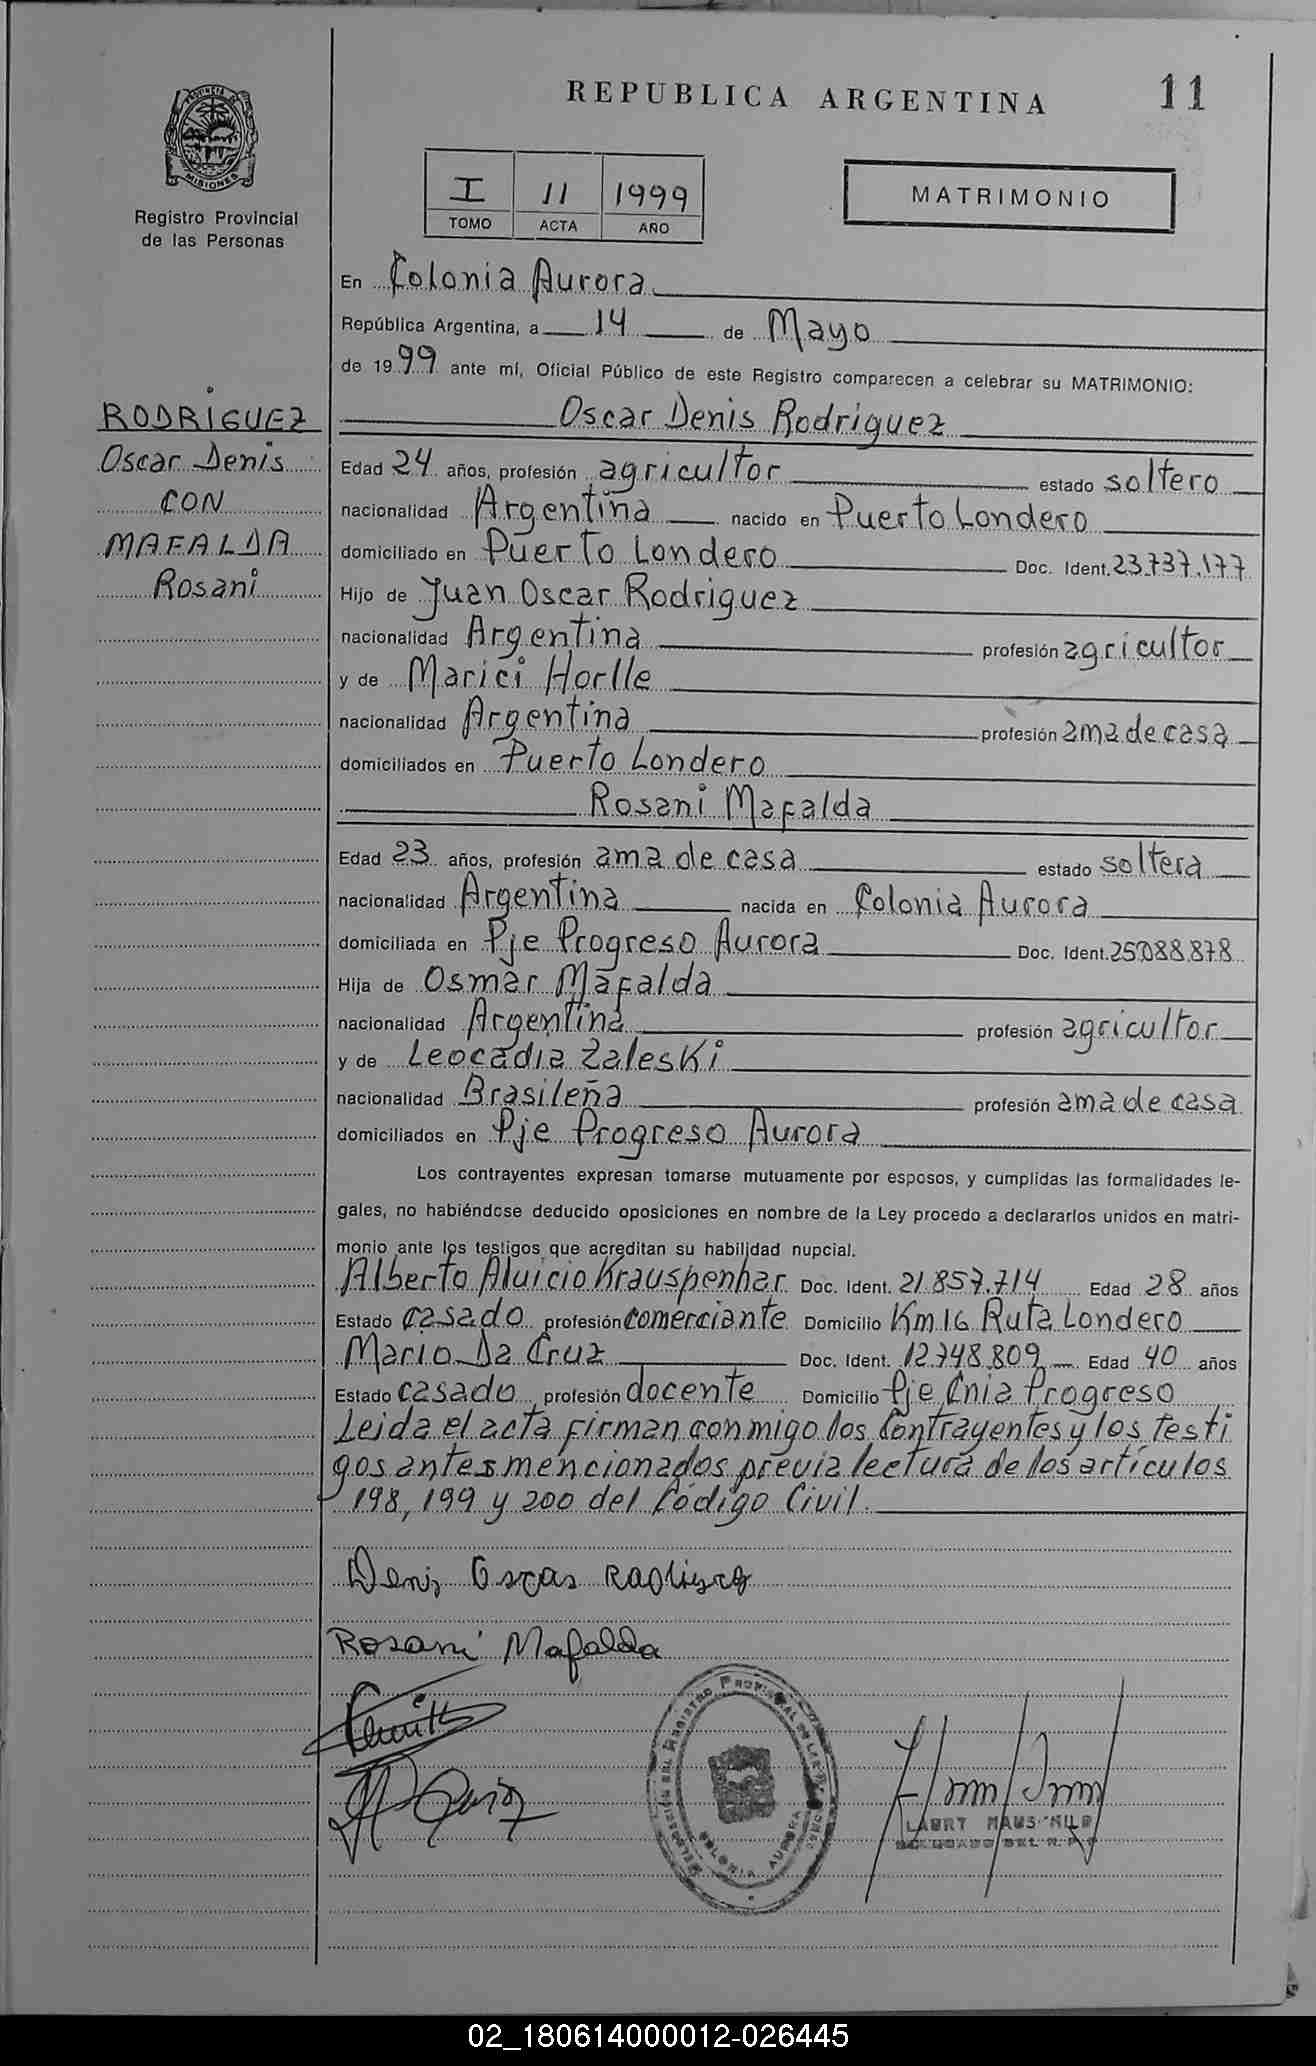 REPUBLICA ARGENTINA
11
PROVINCIA DE
MISIONES
Registro Provincial
de las Personas
I 11 1999
TOMO ACTA AÑO
MATRIMONIO
En Colonia Aurora
República Argentina, a 14 de Mayo
de 1999 ante mí, Oficial Público de este Registro comparecen a celebrar su MATRIMONIO:
RODRIGUEZ
Oscar Denis
CON
MAFALDA
Rosani
Oscar Denis Rodriguez
Edad 24 años, profesión agricultor estado soltero
nacionalidad Argentina nacido en Puerto Londero
domiciliado en Puerto Londero Doc. Ident. 23.737.177
Hijo de Juan Oscar Rodriguez
nacionalidad Argentina profesión agricultor
y de Marici Horlle
nacionalidad Argentina profesión ama de casa
domiciliados en Puerto Londero
Rosani Mafalda
Edad 23 años, profesión ama de casa estado soltera
nacionalidad Argentina nacida en Colonia Aurora
domiciliada en Pje Progreso Aurora Doc. Ident. 25.088.878
Hija de Osmar Mafalda
nacionalidad Argentina profesión agricultor
y de Leocadia Zaleski
nacionalidad Brasileña profesión ama de casa
domiciliados en Pje Progreso Aurora
Los contrayentes expresan tomarse mutuamente por esposos, y cumplidas las formalidades le-
gales, no habiéndose deducido oposiciones en nombre de la Ley procedo a declararlos unidos en matri-
monio ante los testigos que acreditan su habilidad nupcial.
Alberto Aluicio Krauspenhar Doc. Ident. 21.857.714 Edad 28 años
Estado casado profesión comerciante Domicilio Km 16 Ruta Londero
Mario Da Cruz Doc. Ident. 12.748.809 Edad 40 años
Estado casado profesión docente Domicilio Pje Cnia Progreso
Leida el acta firman conmigo los Contrayentes y los testi
gos antes mencionados previa lectura de los artículos
198, 199 y 200 del Código Civil.
Denis Oscar
Rosani Mafalda
REGISTRO PROVINCIAL DE LAS
COLONIA AURORA
02_180614000012-026445